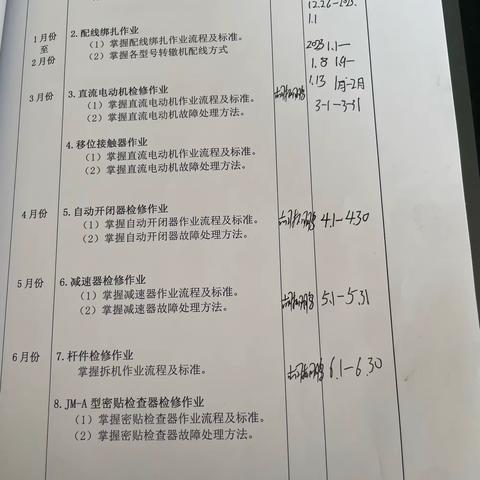 12.26-2023.
1.1
1月份
至
2月份
2.配线绑扎作业
（1）掌握配线绑扎作业流程及标准。
（2）掌握各型号转辙机配线方式
2023 1.1-
1.8 1.9-
1.13 1月-2月
3月份
3.直流电动机检修作业
（1）掌握直流电动机作业流程及标准。
（2）掌握直流电动机故障处理方法。
3-1-3-31
4.移位接触器作业
（1）掌握直流电动机作业流程及标准。
（2）掌握直流电动机故障处理方法。
4月份
5.自动开闭器检修作业
（1）掌握自动开闭器作业流程及标准。
（2）掌握自动开闭器故障处理方法。
4.1-4.30
5月份
6.减速器检修作业
（1）掌握减速器作业流程及标准。
（2）掌握减速器故障处理方法。
5.1-5.31
6月份
7.杆件检修作业
掌握拆机作业流程及标准。
6.1-6.30
8.JM-A 型密贴检查器检修作业
（1）掌握密贴检查器作业流程及标准。
（2）掌握密贴检查器故障处理方法。